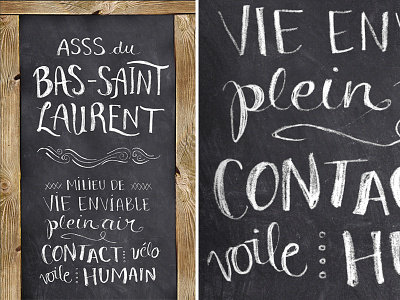 ASSS du
BAS-SAINT
LAURENT
MILIEU DE
VIE ENVIABLE
plein air
CONTACT vélo
voile HUMAIN
VIE ENV
plein
CONTAC
voile HU